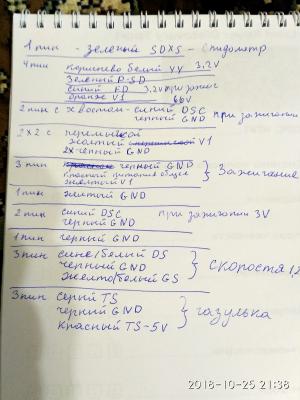 1 пин - зеленый SDXS - Спидометр
4 пин коричнево белый VV 3,2V
Зеленый P-SD
синий FD 3.2V при зажиг
оранже V1 66V
2 пин с хвостом - синий DSC
черный GND при зажигании
2x2 с
желтый V1
2x черный GND
3 пин черный GND
Красный питание общее
желтый V1 } Зажигание
1 пин желтый GND
2 пин синий DSC при зажигании 3V
черный GND
1 пин черный GND
3 пин сине/белый DS
черный GND
желто/белый GS } скорости
3 пин серый TS
черный GND
красный TS-5V } газулька
2018-10-25 21:38